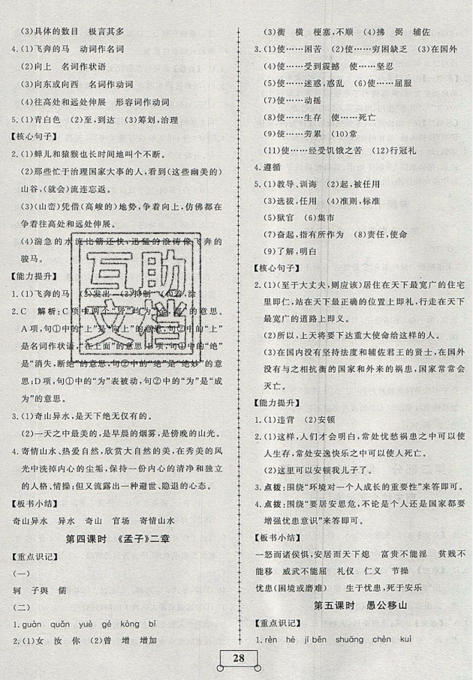 (3)具体的数目　极言其多
4.(1)飞奔的马　动词作名词
(2)向上　名词作状语
(3)向东或向西　名词作动词
(4)往高处和远处伸展　形容词作动词
5.(1)青白色　(2)至,到达　(3)筹划,治理
【核心句子】
2.(1)蝉儿和猿猴也长时间地叫个不断。
(2)那些忙于治理国家大事的人,看到(这些幽美的)
山谷,(就会)流连忘返。
(3)(山峦)凭借(高峻的)地势,争着向上,仿佛都在
争着往高处和远处伸展。
(4)湍急的水流比箭还快,迅猛的浪涛像飞奔的
骏马。
【能力提升】
1.(1)飞奔的马
2.C　解析:C项中两个
A项,句①中的“上”是
是名词作状语,“在上面”的意思
是“消失,断绝”的意思,句②中的“绝”是“绝妙”的意
思;D项,句①中的“为”表被动,句②中的“为”是“成
为”的意思。
3.(1)奇山异水,是天下绝无仅有的。
(2)一天之中最美的,是早晨的烟雾,是傍晚的山光。
4.寄情山水,热爱自然,欣赏大自然的美,在秀美的风
光中洗掉内心的尘垢,保持一份内心的清净和独立
的人格、情操,但又流露出一种避世、隐退的心态。
【板书小结】
奇山异水　异水　奇山　官场　寄情山水
第四课时　《孟子》二章
【重点识记】
(一)
轲　子舆　儒
(二)
1.guǎ　quǎn　yuè　gé　kòng　bì
2.(1)女　汝　你　(2)曾　增　增加
(3)衡　横　梗塞,不顺　(4)拂　弼　辅佐
4.(1)使……困苦　(2)使……穷困缺乏　(3)在国外
(4)使……受到震撼　使……坚忍
(5)使……迷惑,惑乱　(6)使……屈服
(7)使……动摇
(8)使……生存　使……死亡
(9)使……劳累　(10)常
(11)使……经受饥饿之苦　(12)行冠礼
4.遵循
5.(1)教导、训诲　(2)起,被任用
(3)选拔,任用　(4)准则,标准
(5)狱官　(6)集市
(7)奋起,指有所作为　(8)责任,使命
(9)了解,明白
【核心句子】
2.(1)(至于大丈夫,则应该)居住在天下最宽广的住宅
里即仁,站在天下最正确的位置上即礼,行走在天下
最宽广的道路上即义。
(2)所以,上天将要下达重大使命给这样的人。
(3)在国内没有坚持法度和辅佐君王的贤士,在国外
没有与之相抗衡的国家和外患的侵扰,国家常常会
灭亡。
【能力提升】
1.(1)违背　(2)安顿
2.(1)这样,人们才会明白,常处忧愁祸患之中可以使
人生存,常处安逸快乐之中可以使人死亡。
(2)这里可以安顿我儿子了。
3.点拨:围绕“环境对一个人成长的重要性”来答即可。
4.点拨:围绕“要居安思危,不论是个人还是国家都要
增强忧患意识”来答即可。
【板书小结】
一怒而诸侯惧,安居而天下熄　富贵不能淫　贫贱不
能移　威武不能屈　礼仪　仁义　节操
忧患(困境或磨难)　生于忧患,死于安乐
第五课时　愚公移山
【重点识记】
1.rèn　hè　jǐ　běn　shuāng　chèn　kuì
28
互助
文档